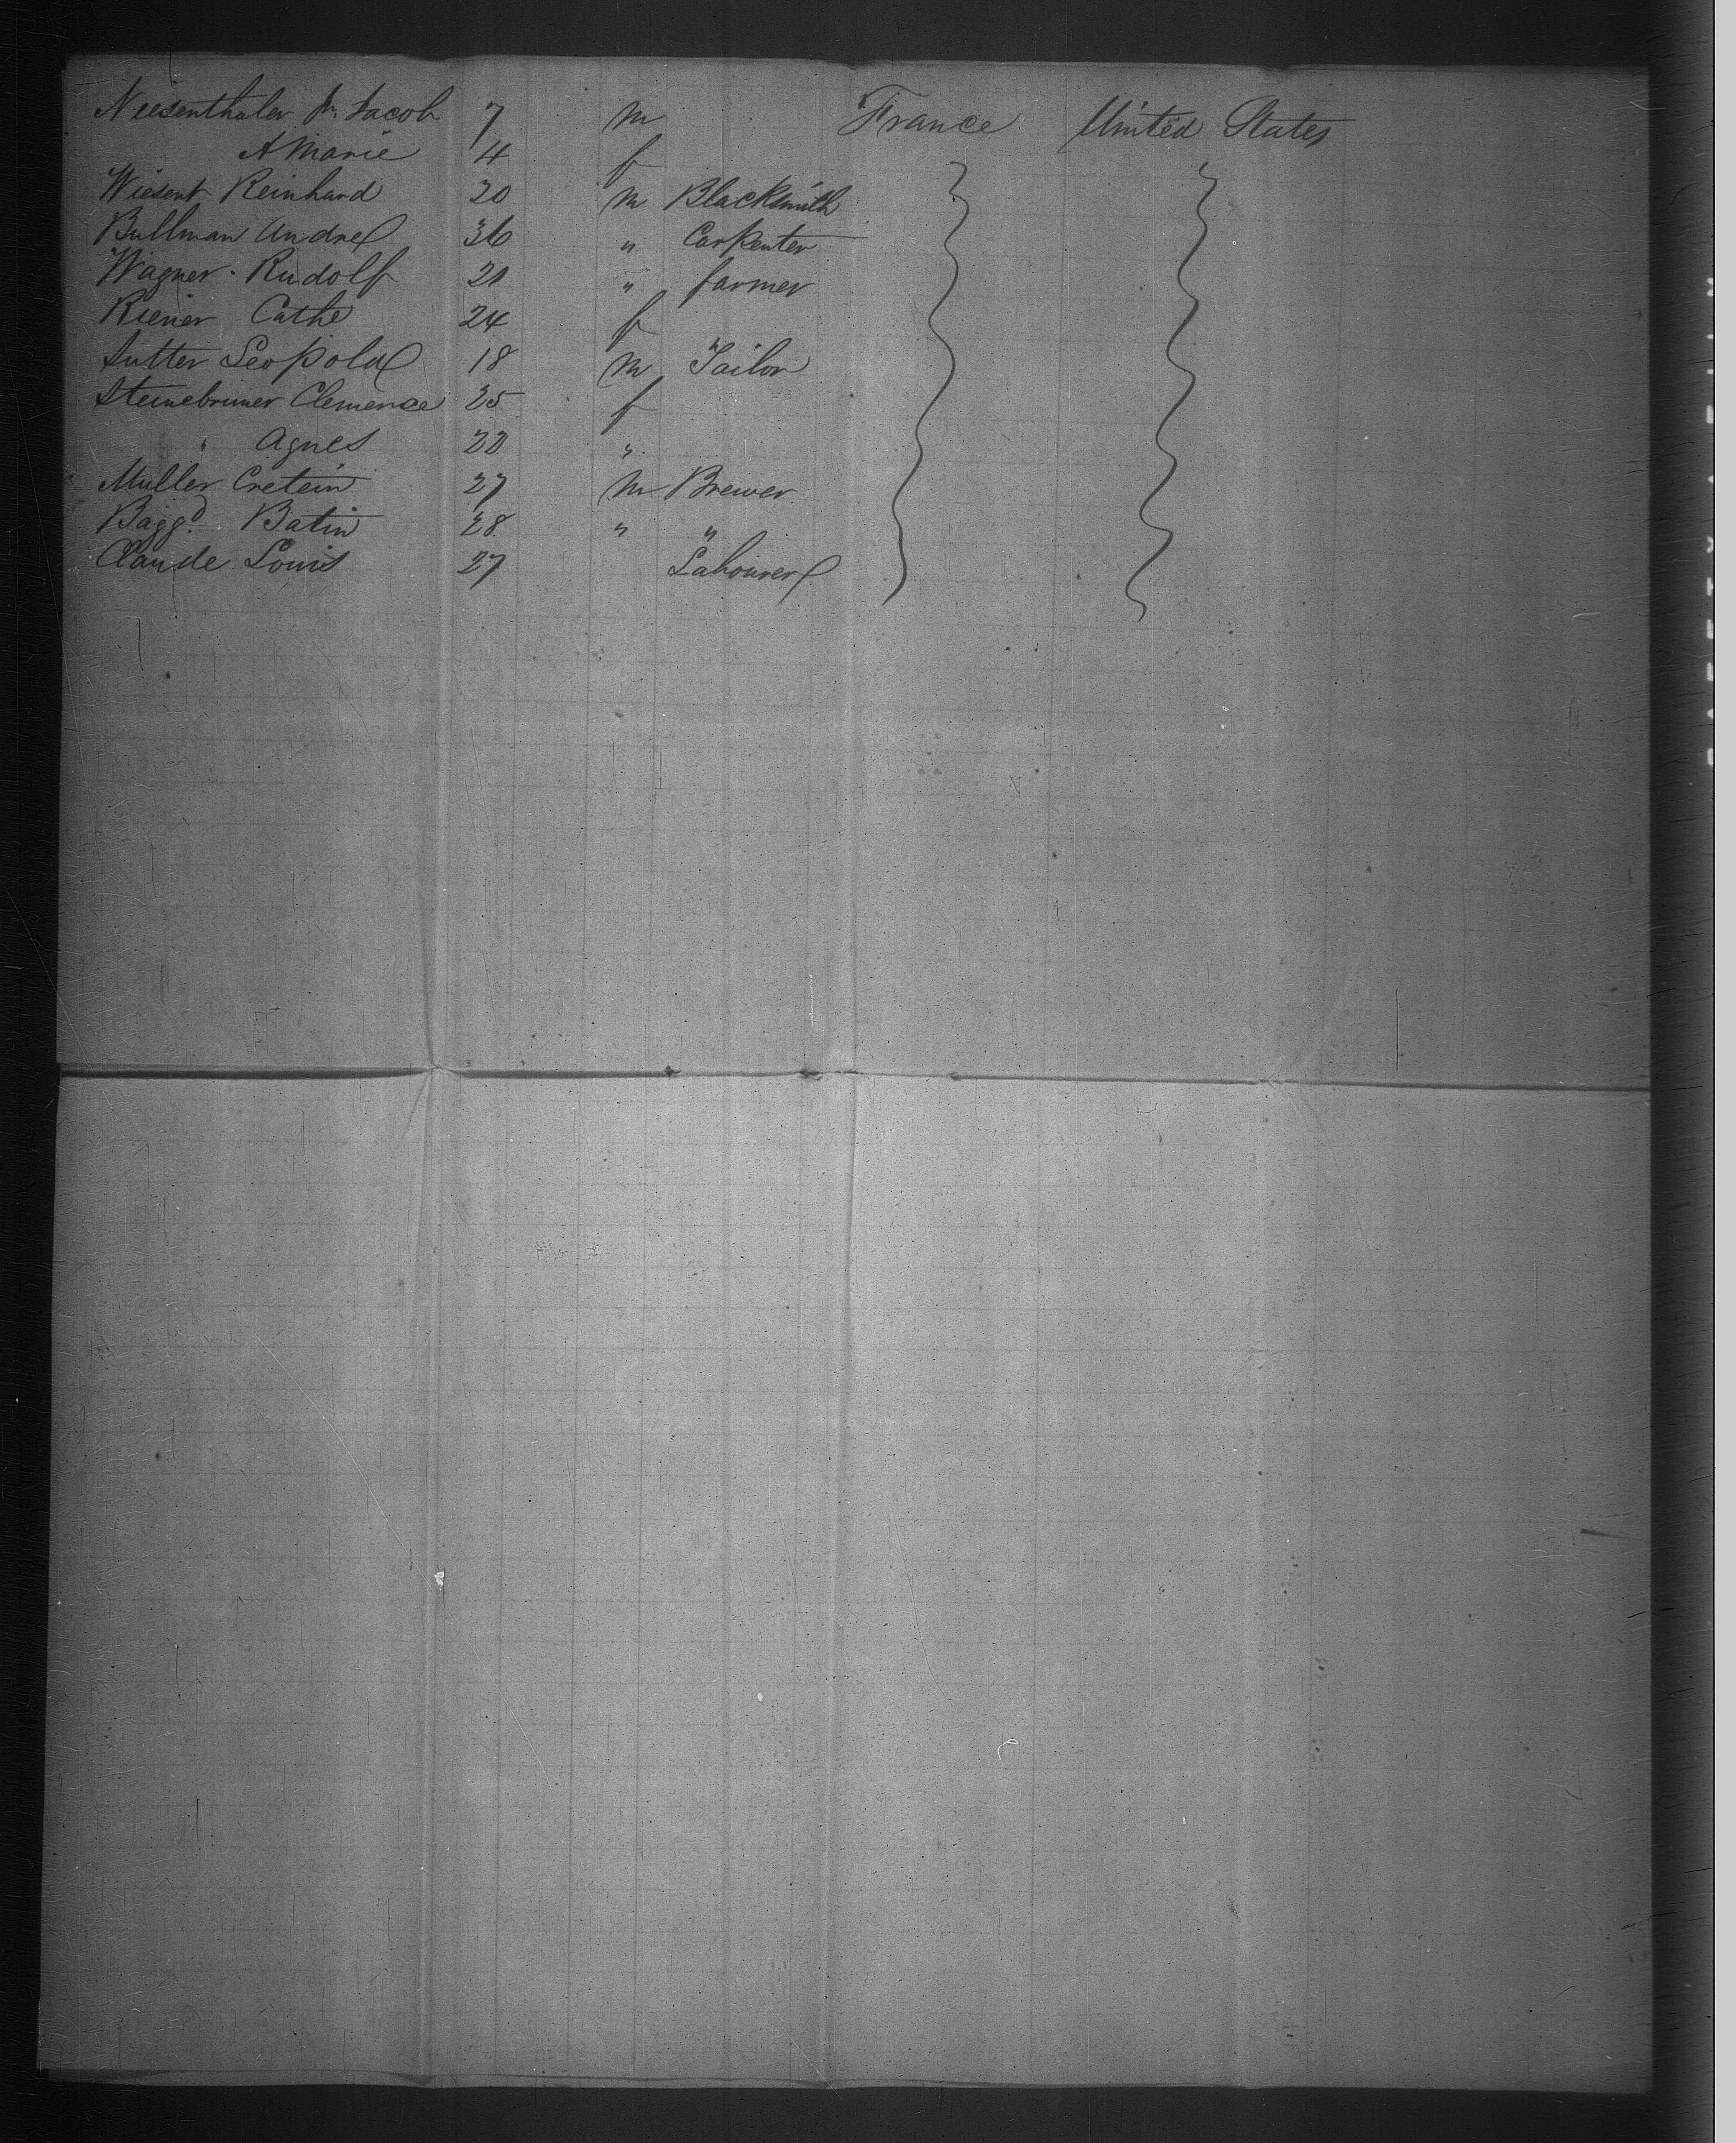 Niesenthaler Jn. Jacob 7 m France United States
A Marie 4 f
Wiesent Reinhard 20 m Blacksmith
Bullman Andre 36 " Carpenter
Wagner Rudolf 21 " farmer
Riener Cathe 24 f
Sutter Leopold 18 m Tailor
Steinebruner Clemence 25 f
" Agnes 22 "
Muller Cretein 27 m Brewer
Batin 28 " "
Claude Louis 27 Labourer